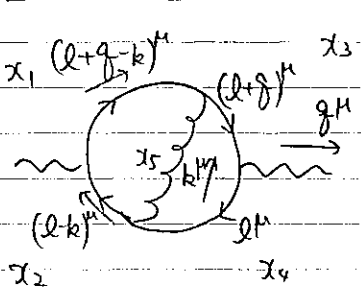 x₁ (l+q-k)^μ x₃
(l+q)^μ q^μ
x₅ k^μ
(l-k)^μ l^μ
x₂ x₄